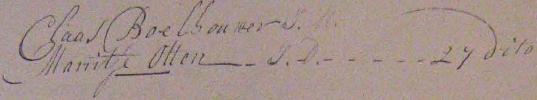 Claas Boelhouwer J. M.
Marritje Otten - - J. D. - - - - - - 27 dito